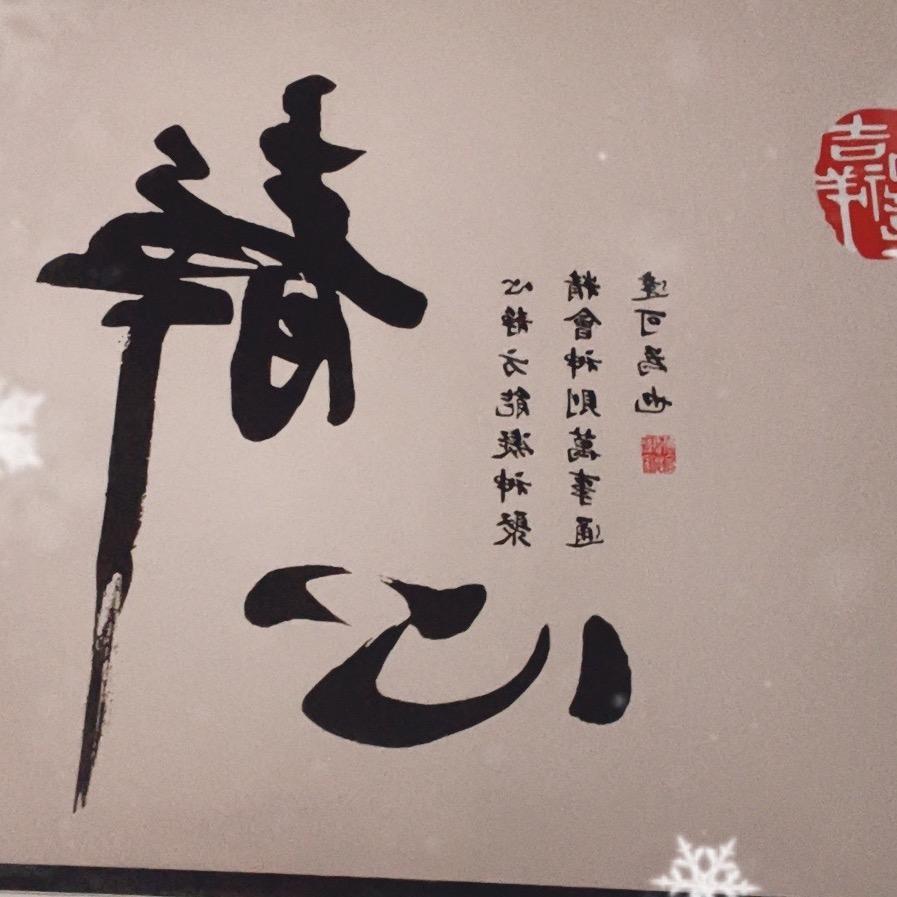 靜心
心靜方能凝神聚
精會神則萬事通
達可為也
吉祥